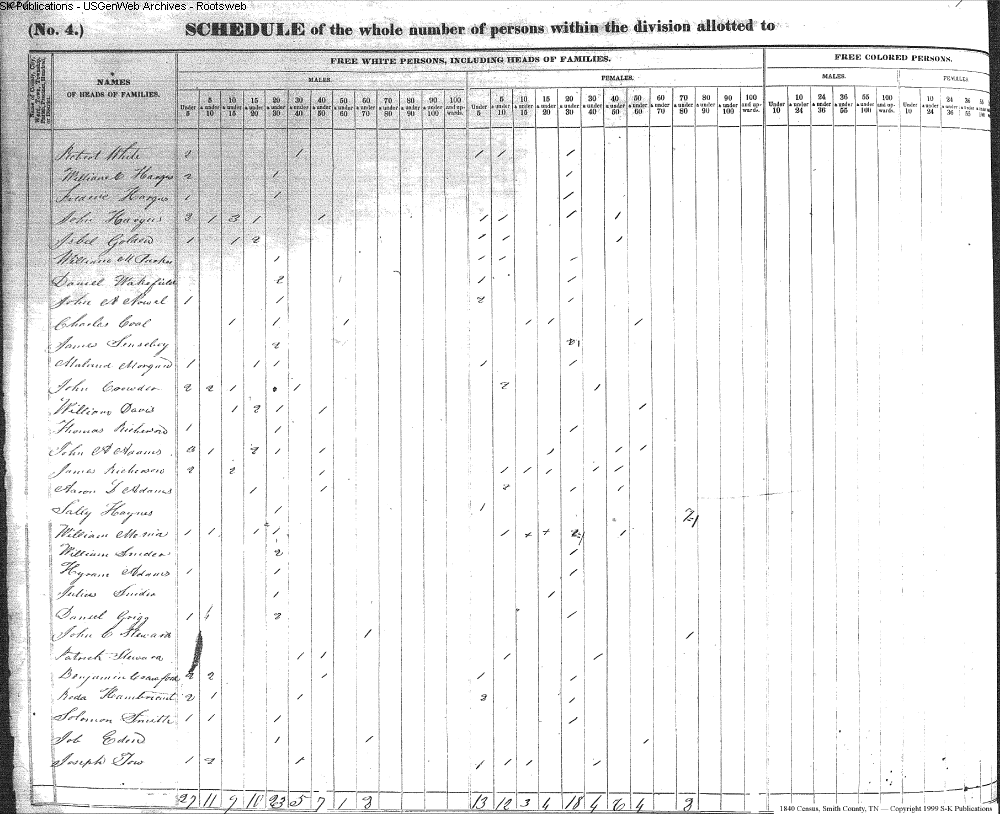 S-K Publications - USGenWeb Archives - Rootsweb
(No. 4.) SCHEDULE of the whole number of persons within the division allotted to
FREE WHITE PERSONS, INCLUDING HEADS OF FAMILIES. FREE COLORED PERSONS.
NAMES OF HEADS OF FAMILIES. MALES. FEMALES. MALES. FEMALES.
Under 5 5 & under 10 10 & under 15 15 & under 20 20 & under 30 30 & under 40 40 & under 50 50 & under 60 60 & under 70 70 & under 80 80 & under 90 90 & under 100 100 and upwards. Under 5 5 & under 10 10 & under 15 15 & under 20 20 & under 30 30 & under 40 40 & under 50 50 & under 60 60 & under 70 70 & under 80 80 & under 90 90 & under 100 100 and upwards. Under 10 10 & under 24 24 & under 36 36 & under 55 55 & under 100 100 and upwards. Under 10 10 & under 24 24 & under 36 36 & under 55 55 & under 100
Robert White 2 1 1 1 1
William C Hargis 2 1 1
Frederic Hargus 1 1 1
John Hargus 3 1 3 1 1 1 1 1 1
1 1 2 1 1 1
William M 1 1 1 1
Daniel Wakefield 2 1 1
John A Nowel 1 1 2 1
Charles Coal 1 1 1 1 1 1
James 2
Morgan 1 1 1 1 1
John Crowder 2 2 1 1 2 1
William Davis 1 2 1 1 1
Thomas Richerson 1 1 1
John A Adams 1 2 1 1 1 1 1
James Richerson 2 2 1 1 1 1 1 1
Aaron L Adams 1 1 2 1 1
Sally Haynes 1 1
William 1 1 1 1 1 1
William Snider 2 1
Hyram Adams 1 1 1
Julius Snider 1 1
Daniel Grigg 1 1 2 1
John C Steward 1 1
Patrick Steward 1 1 1 1
Benjamin Crawford 2 2 1 1 1
Roda 2 1 1 3 1
Solomon Smith 1 1 1 1
Job Eden 1 1 1
Joseph Tow 1 2 1 1 1 1 1
27 11 9 10 23 5 7 1 3 13 12 3 4 18 4 6 4 3
1840 Census, Smith County, TN — Copyright 1999 S-K Publications